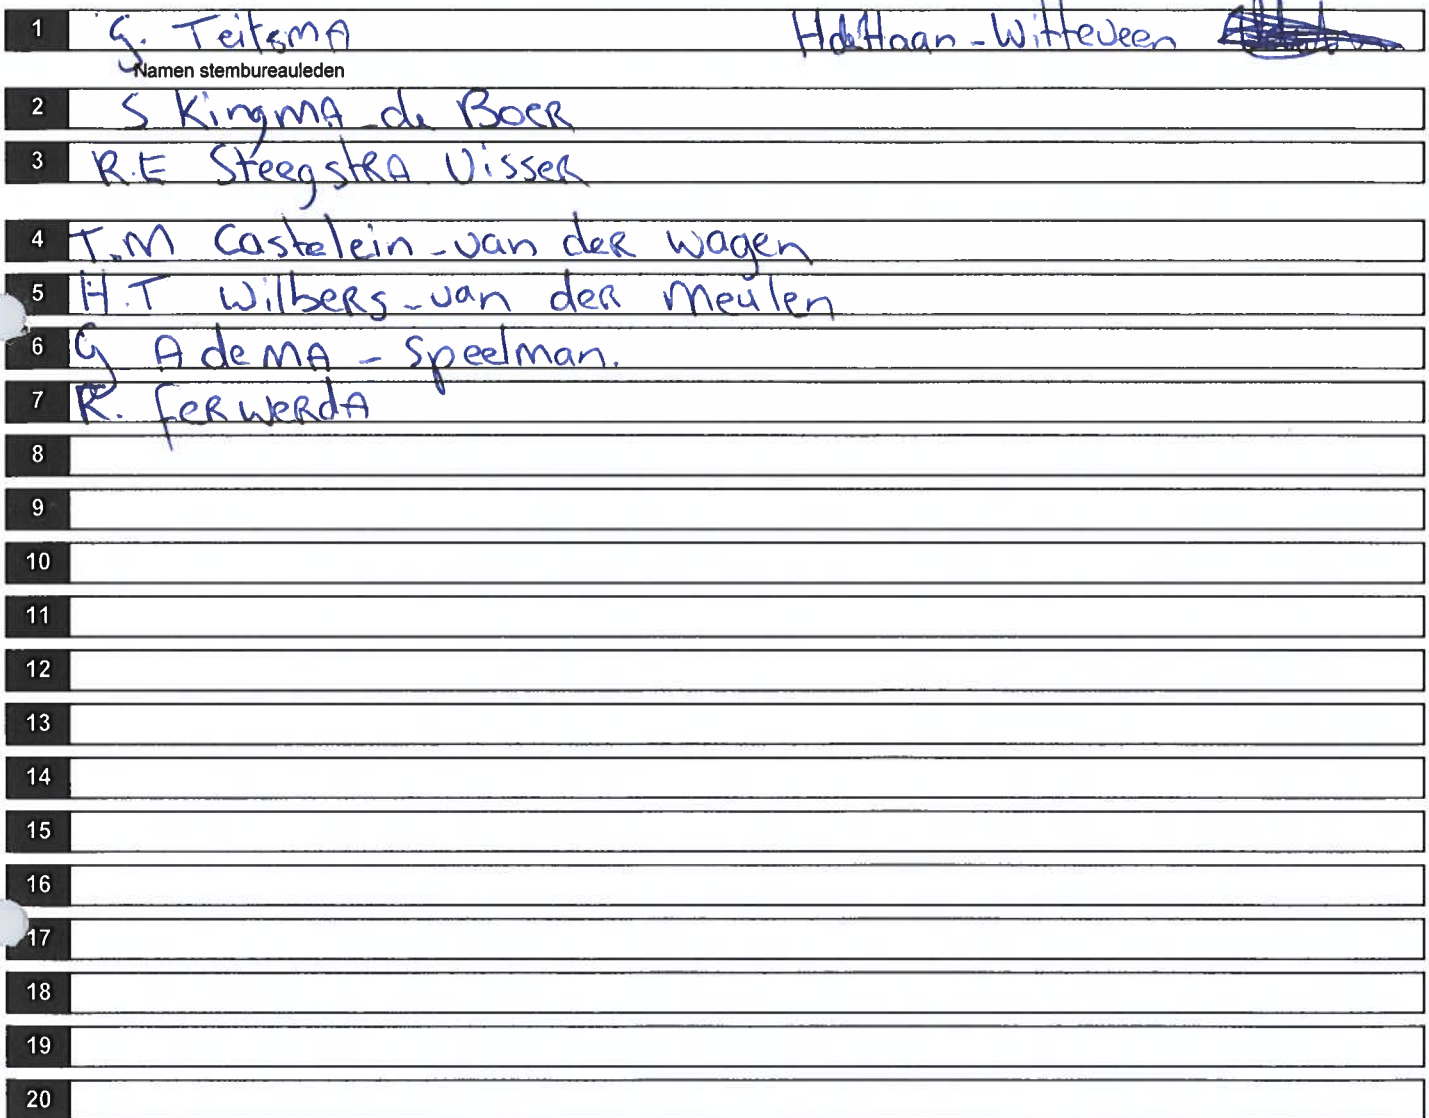 1 G. Teitsma HdeHaan-Witteveen
Namen stembureauleden
2 S KingmA-de BoeR
3 R.E SteegstRA VisseR
4 T.M Castelein-van deR wagen
5 H.T WilbeRs-van deR Meulen
6 G AdemA - Speelman.
7 R. feRweRdA
8
9
10
11
12
13
14
15
16
17
18
19
20